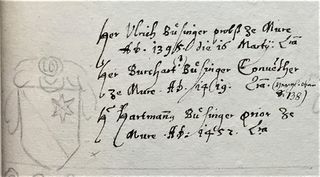 Her Ulrich Büsinger probst ze Mure
Ao. 1395. die 16 Martij.
Her Burchart Büsinger Conuether
ze Mure. Ao. 1419.
Hr Hartmann Büsinger prior ze
Mure. Ao. 1452.